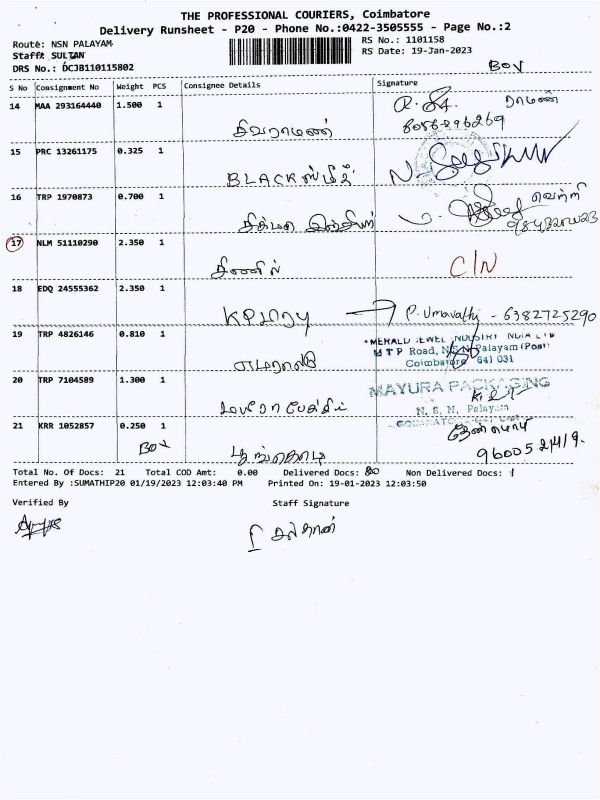 THE PROFESSIONAL COURIERS, Coimbatore
Delivery Runsheet - P20 - Phone No.:0422-3505555 - Page No.:2
Route: NSN PALAYAM
RS No.: 1101158
Staff: SULTAN
RS Date: 19-Jan-2023
DRS No.: DCJB110115802
BOV
S No Consignment No Weight PCS Consignee Details Signature
14 MAA 293164440 1.500 1
சிவராமன்
ராமன்
8056896269
15 PRC 13261175 0.325 1
BLACK ஸ்மித்
16 TRP 1970873 0.700 1
வெற்றி
17 NLM 51110290 2.350 1
C/N
18 EDQ 24555362 2.350 1
P. Umavathy - 6382725290
19 TRP 4826146 0.810 1
எமரால்டு
EMERALD JEWEL INDUSTRY INDIA LTD
M T P Road, N.S.N. Palayam (Post)
Coimbatore 641 031
20 TRP 7104589 1.300 1
MAYURA PACKAGING
N. S. N. Palayam
21 KRR 1052857 0.250 1
BOV
பூங்கொடி
Total No. Of Docs: 21 Total COD Amt: 0.00 Delivered Docs: 20 Non Delivered Docs: 1
Entered By :SUMATHIP20 01/19/2023 12:03:40 PM Printed On: 19-01-2023 12:03:50
Verified By Staff Signature
சுல்தான்